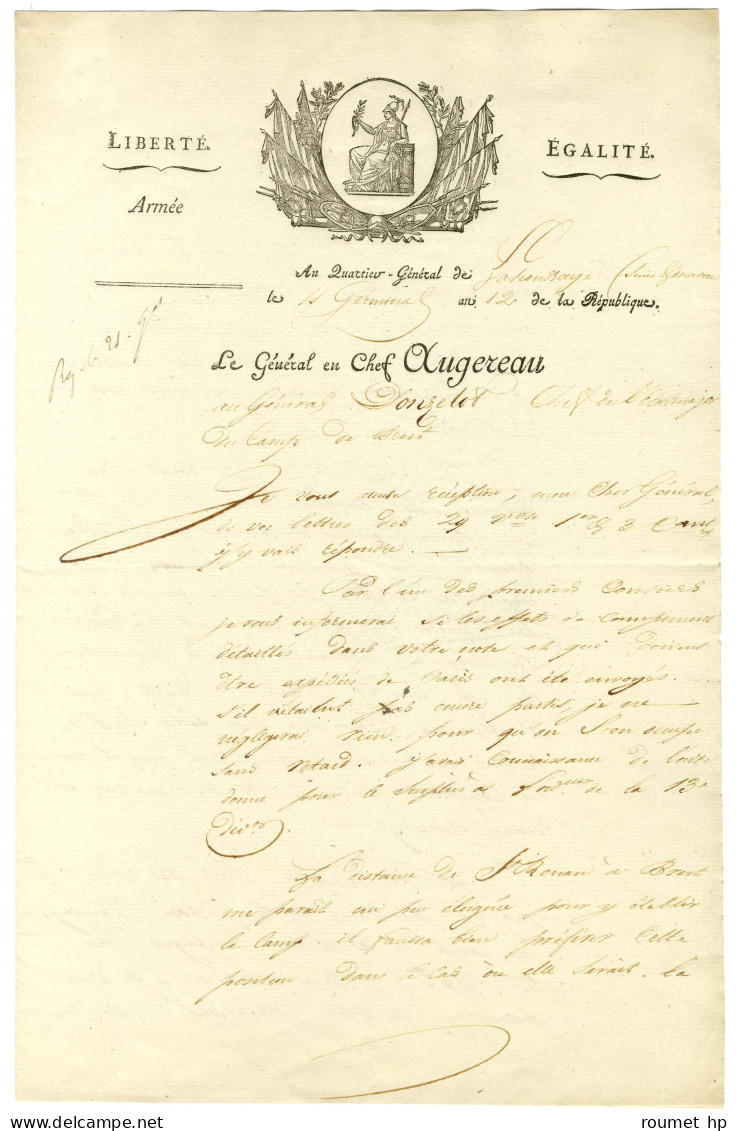 LIBERTÉ.
ÉGALITÉ.
Armée
Au Quartier-Général de Lahoussaye (Seine &marne
le 11 Germinal an 12 de la République.
Rep le 21. Gal
Le Général en Chef Augereau
au Général Donzelot Chef de l'Etat major
du Camp de Brest
Je vous accuse réception, mon Cher Général,
de vos lettres des 29 vose 1er & 3 Cant
j'y vais répondre.
Par l'un des premiers Couriers
je vous informerai si les effets de campement
détaillés dans votre note et qui doivent
être expédiés de Paris ont été envoyés.
S'il n'étaient pas encore partis, je ne
négligerai rien pour qu'on s'en occupe
sans retard. j'avais connaissance de l'ordre
donné pour le surplus à de la 13e
divon.
La distance de St. Renan à Brest
me parait un peu éloignée pour y établir
le Camp. il faudra bien préférer cette
position dans le cas où elle serait la
roumet hp